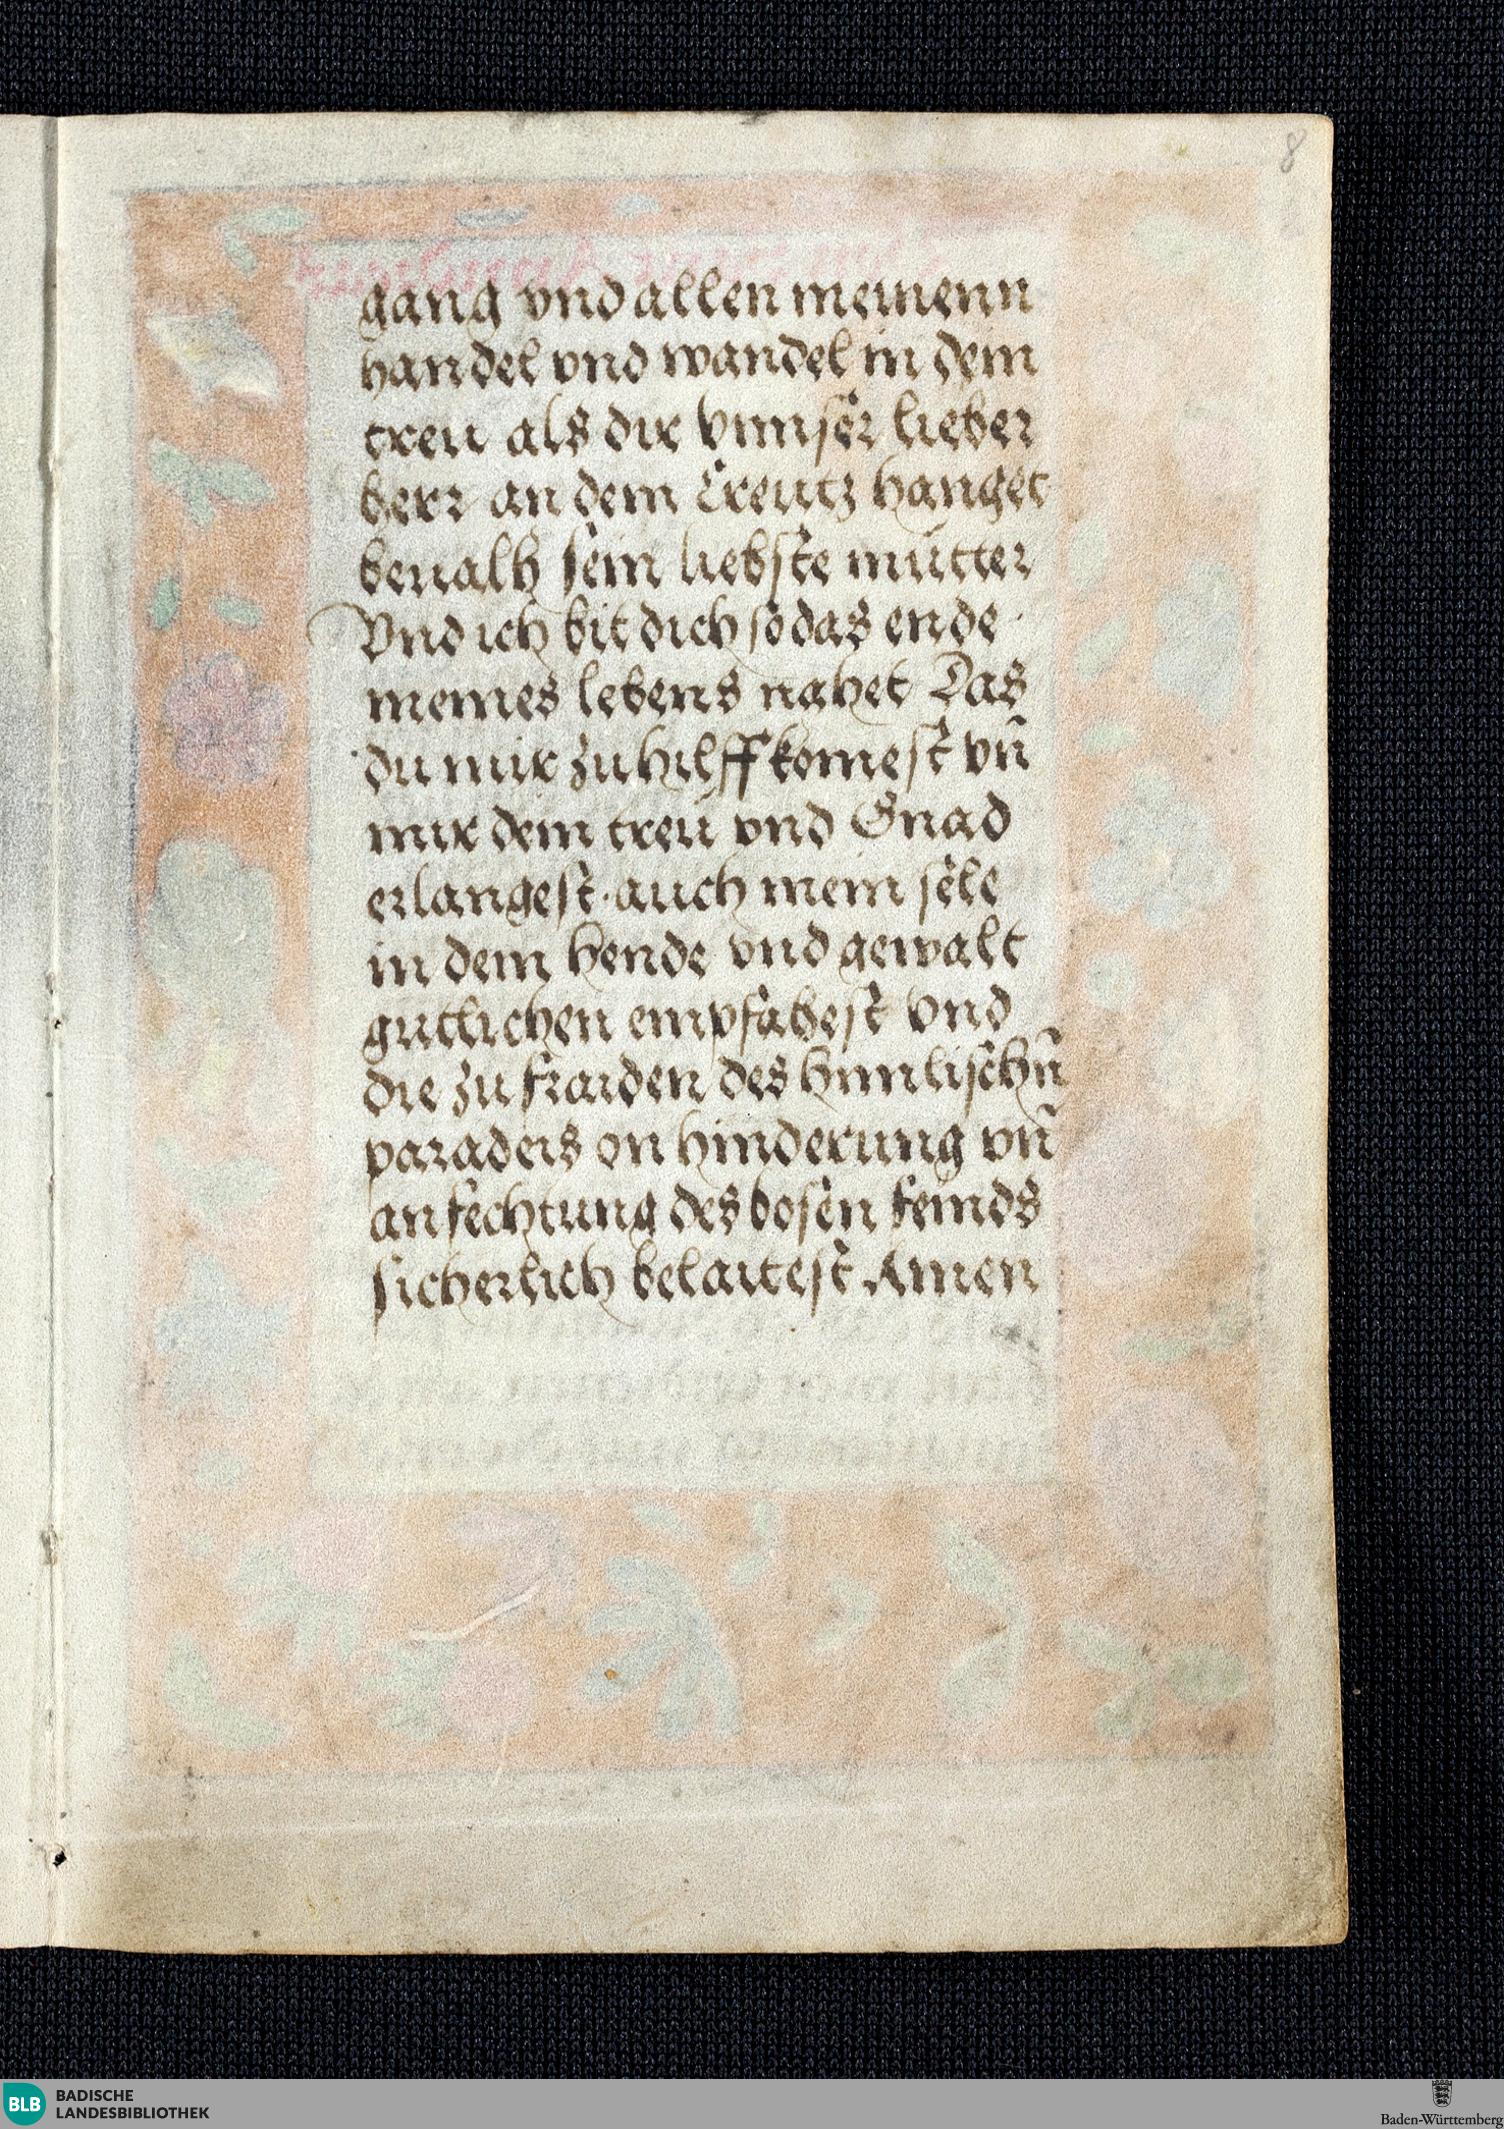 8
gang vnd allen meinenn
handel vnd wandel in dein
treu als dir vnnser lieber
herr an dem Creutz hanget
beualh sein liebste mutter
Vnd ich bit dich so das ende
meines lebens nahet Das
du mir zu hilff komest vn̄
mir dein treu vnd Gnad
erlangest · auch mein sele
in dein hende vnd gewalt
gutlichen empfahest vnd
die zu fraiden des himlischn̄
paradeis on hinderung vn̄
anfechtung des bosen feinds
sicherlich belaitest Amen
BLB BADISCHE
LANDESBIBLIOTHEK
Baden-Württemberg